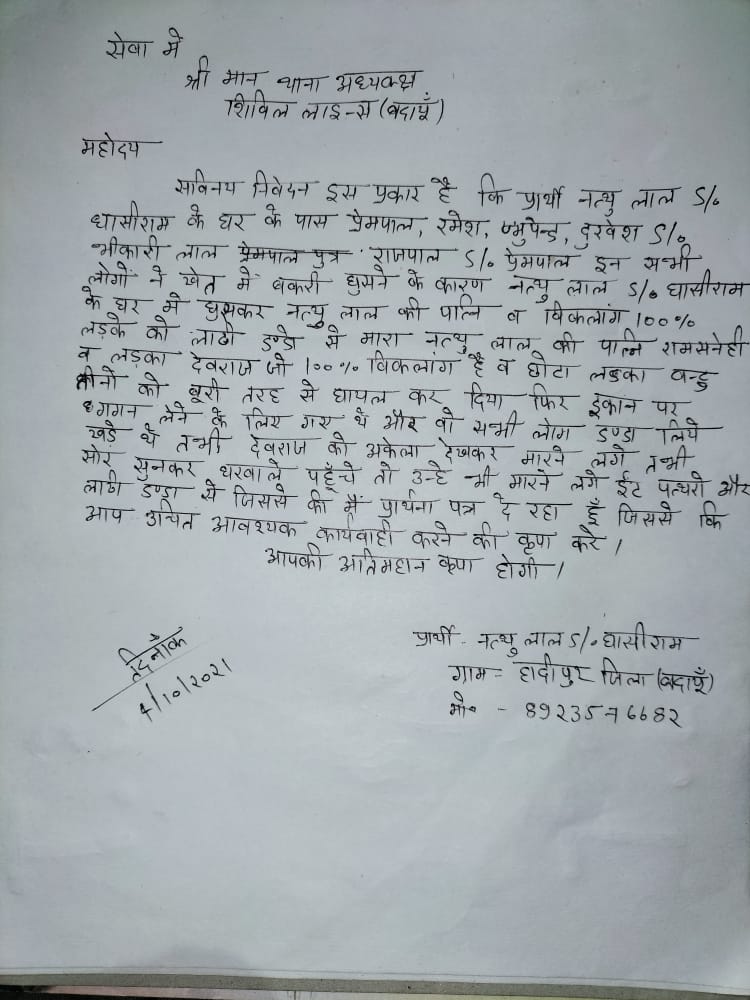 सेवा में
श्री मान थाना अध्यक्ष
शिविल लाइन्स (बदायूँ)
महोदय
सविनय निवेदन इस प्रकार है कि प्रार्थी नत्थु लाल S/०
घासीराम के घर के पास प्रेमपाल, रमेश, भुपेन्द्र, दुरवेश S/०
भीकारी लाल प्रेमपाल पुत्र राजपाल S/० प्रेमपाल इन सभी
लोगों ने खेत में बकरी घुसने के कारण नत्थु लाल S/० घासीराम
के घर में घुसकर नत्थु लाल की पत्नि व विकलांग 100%
लड़के को लाठी डण्डो से मारा नत्थु लाल की पत्नि रामसनेही
व लड़का देवराज जो 100% विकलांग है व छोटा लडका
तीनों को बूरी तरह से घायल कर दिया फिर दुकान पर
लेने के लिए गए थे और वो सभी लोग डण्डा लिये
खड़े थे तभी देवराज को अकेला देखकर मारने लगे तभी
सोर सुनकर घरवाले पहूँचे तो उन्हे भी मारने लगे ईट पत्थरो और
लाठी डण्डा से जिससे की मैं प्रार्थना पत्र दे रहा हूँ जिससे कि
आप उचित आवश्यक कार्यवाही करने की कृपा करे।
आपकी अतिमहान कृपा होगी।
प्रार्थी - नत्थु लाल S/० घासीराम
ग्राम - हादीपुर जिला (बदायूँ)
मो० - 8923576682
दिनाँक
4/10/2021